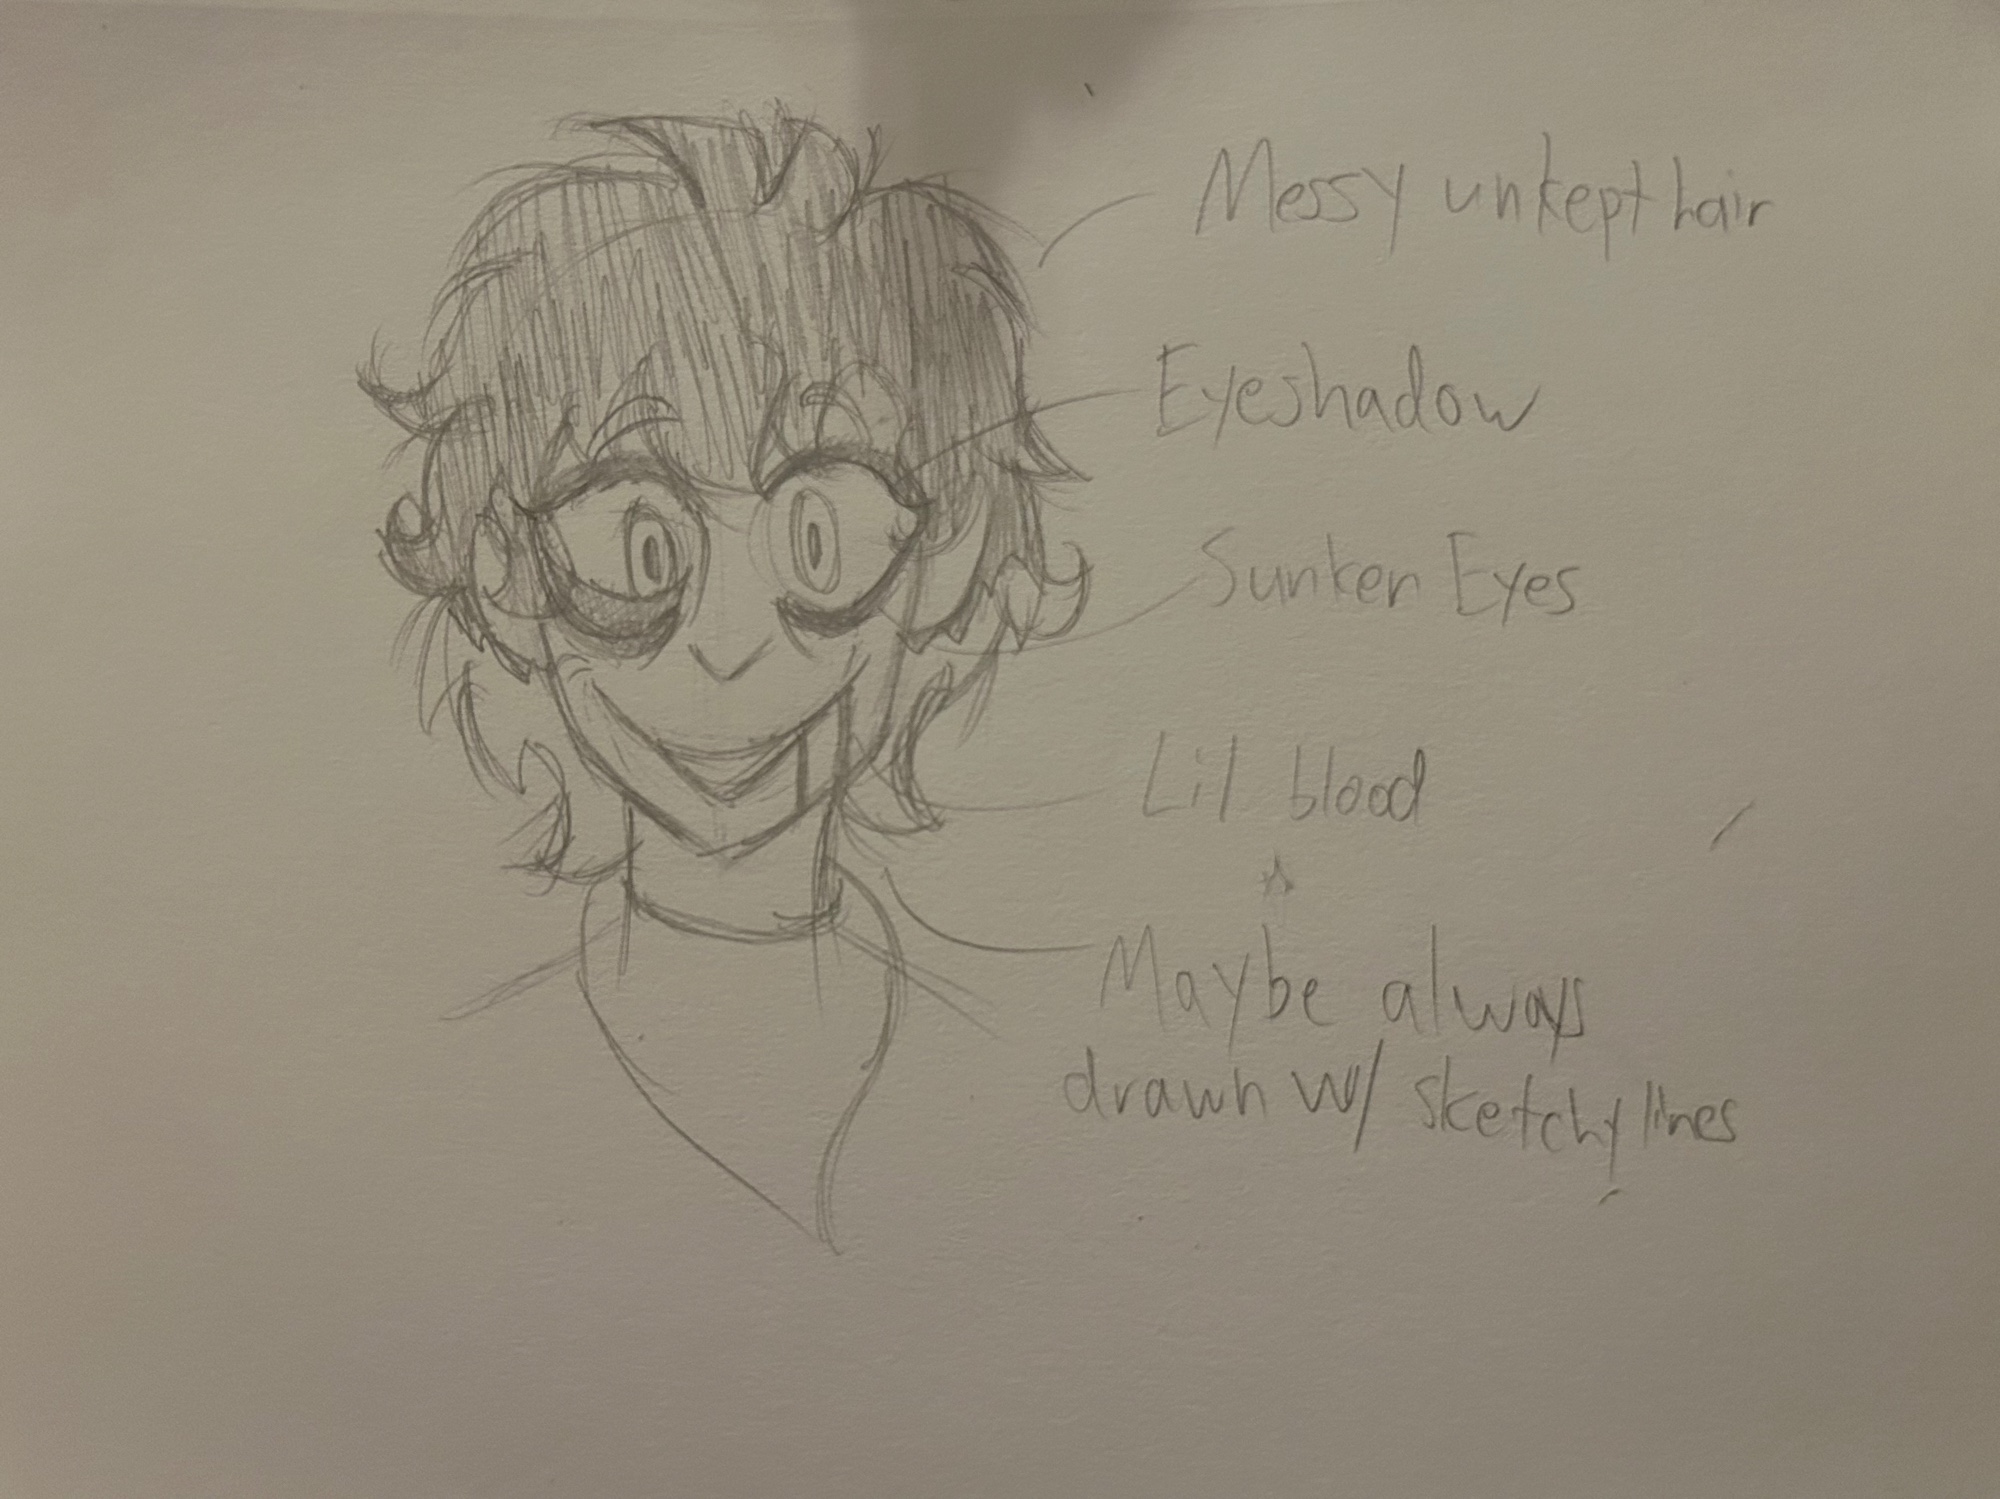 Messy unkept hair
Eyeshadow
Sunken Eyes
Lil blood
Maybe always
drawn w/ sketchy lines